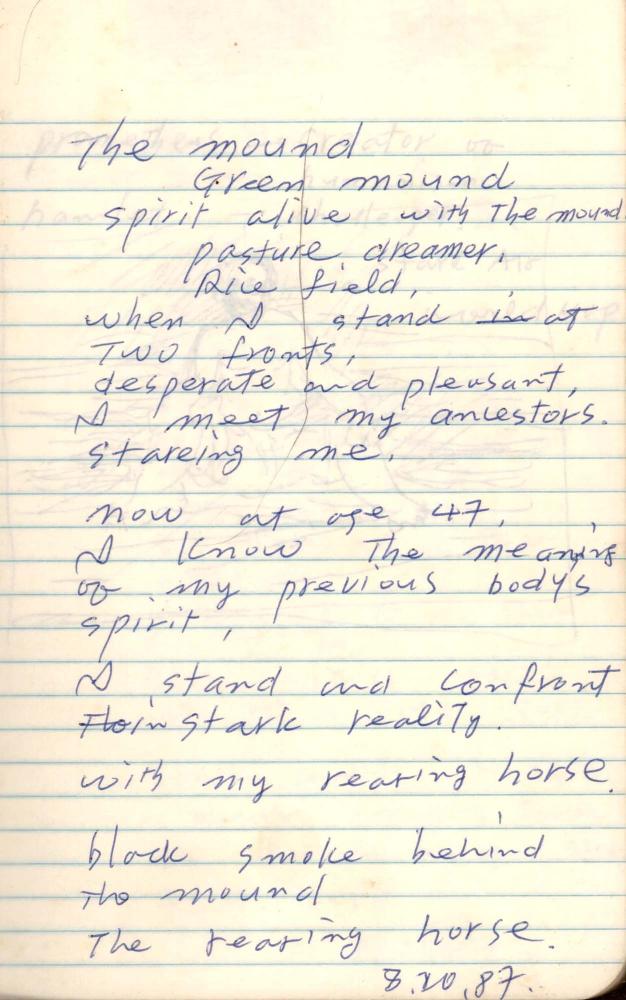 The mound
Green mound
spirit alive with The mound
pasture dreamer,
Rice field,
when I stand in at
TWO fronts,
desperate and pleasant,
I meet my ancestors.
stareing me.
now at age 47,
I know The meaning
of my previous body's
spirit,
I stand and confront
stark reality.
with my rearing horse.
black smoke behind
The mound
The rearing horse.
8.20,87.